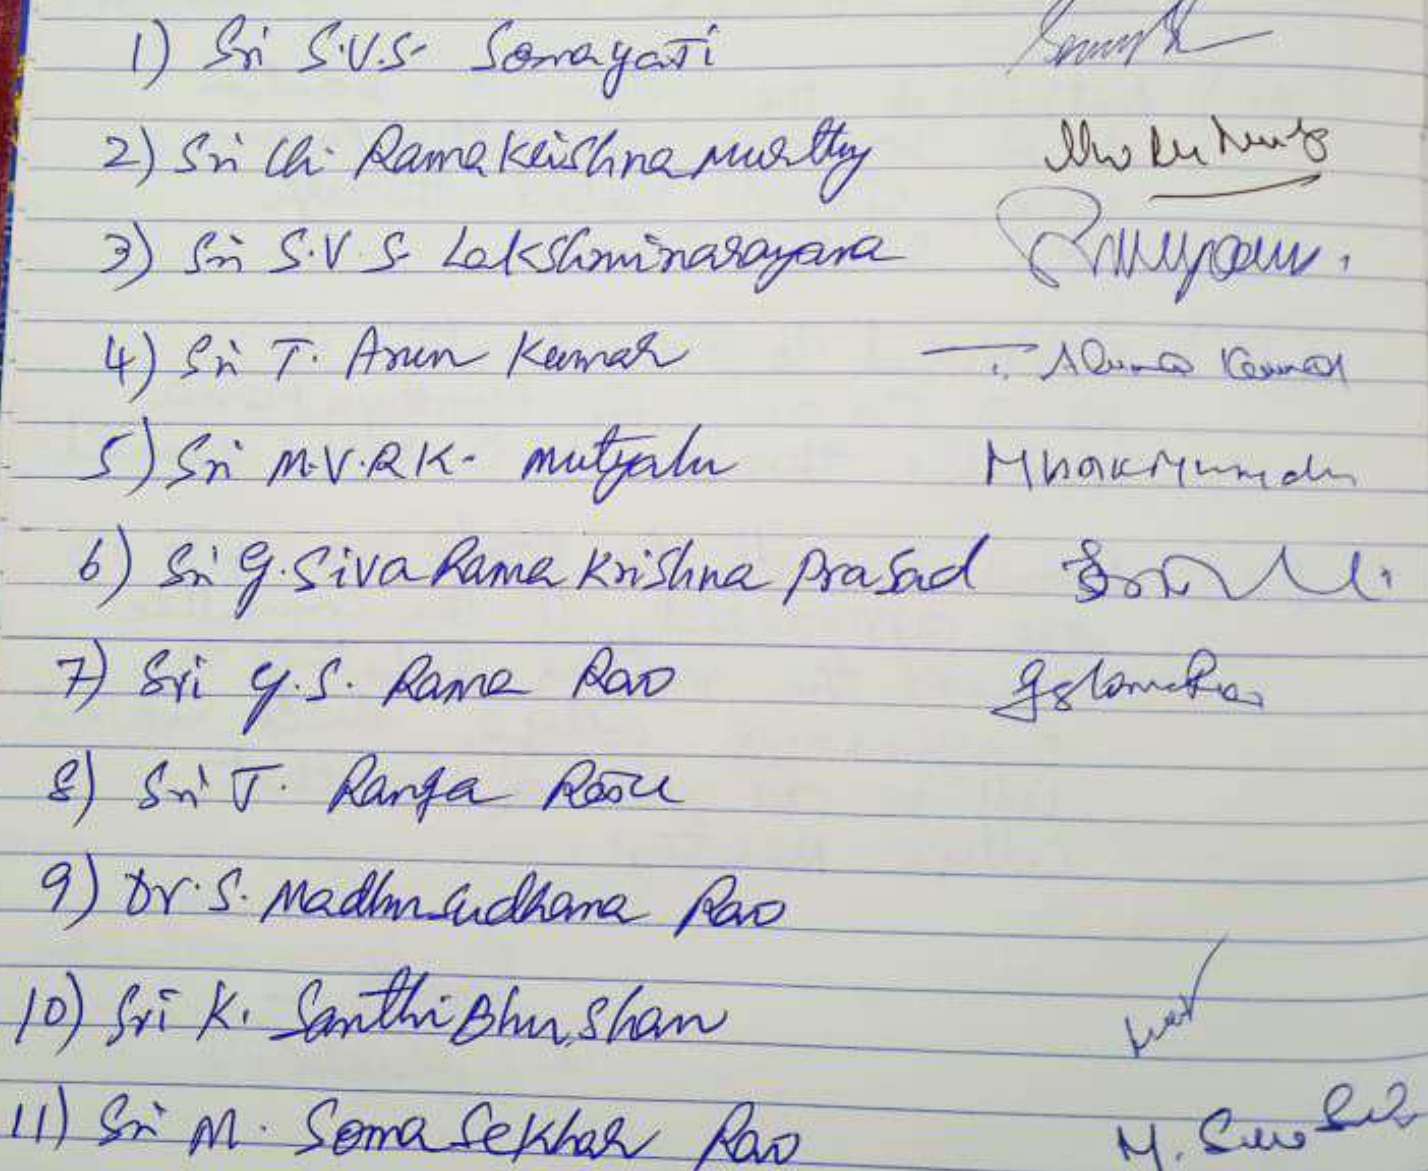 1) Sri S.V.S. Somayaji
2) Sri Ch. Rama Krishna Murthy
3) Sri S.V.S. Lakshminarayana
4) Sri T. Arun Kumar T. Aruna Kumar
5) Sri M.V.R.K. Mutyalu
6) Sri G. Siva Rama Krishna Prasad
7) Sri G.S. Rama Rao GS Rama Rao
8) Sri T. Ranga Raju
9) Dr. S. Madhusudhana Rao
10) Sri K. Santhi Bhushan
11) Sri M. Soma Sekhar Rao M.